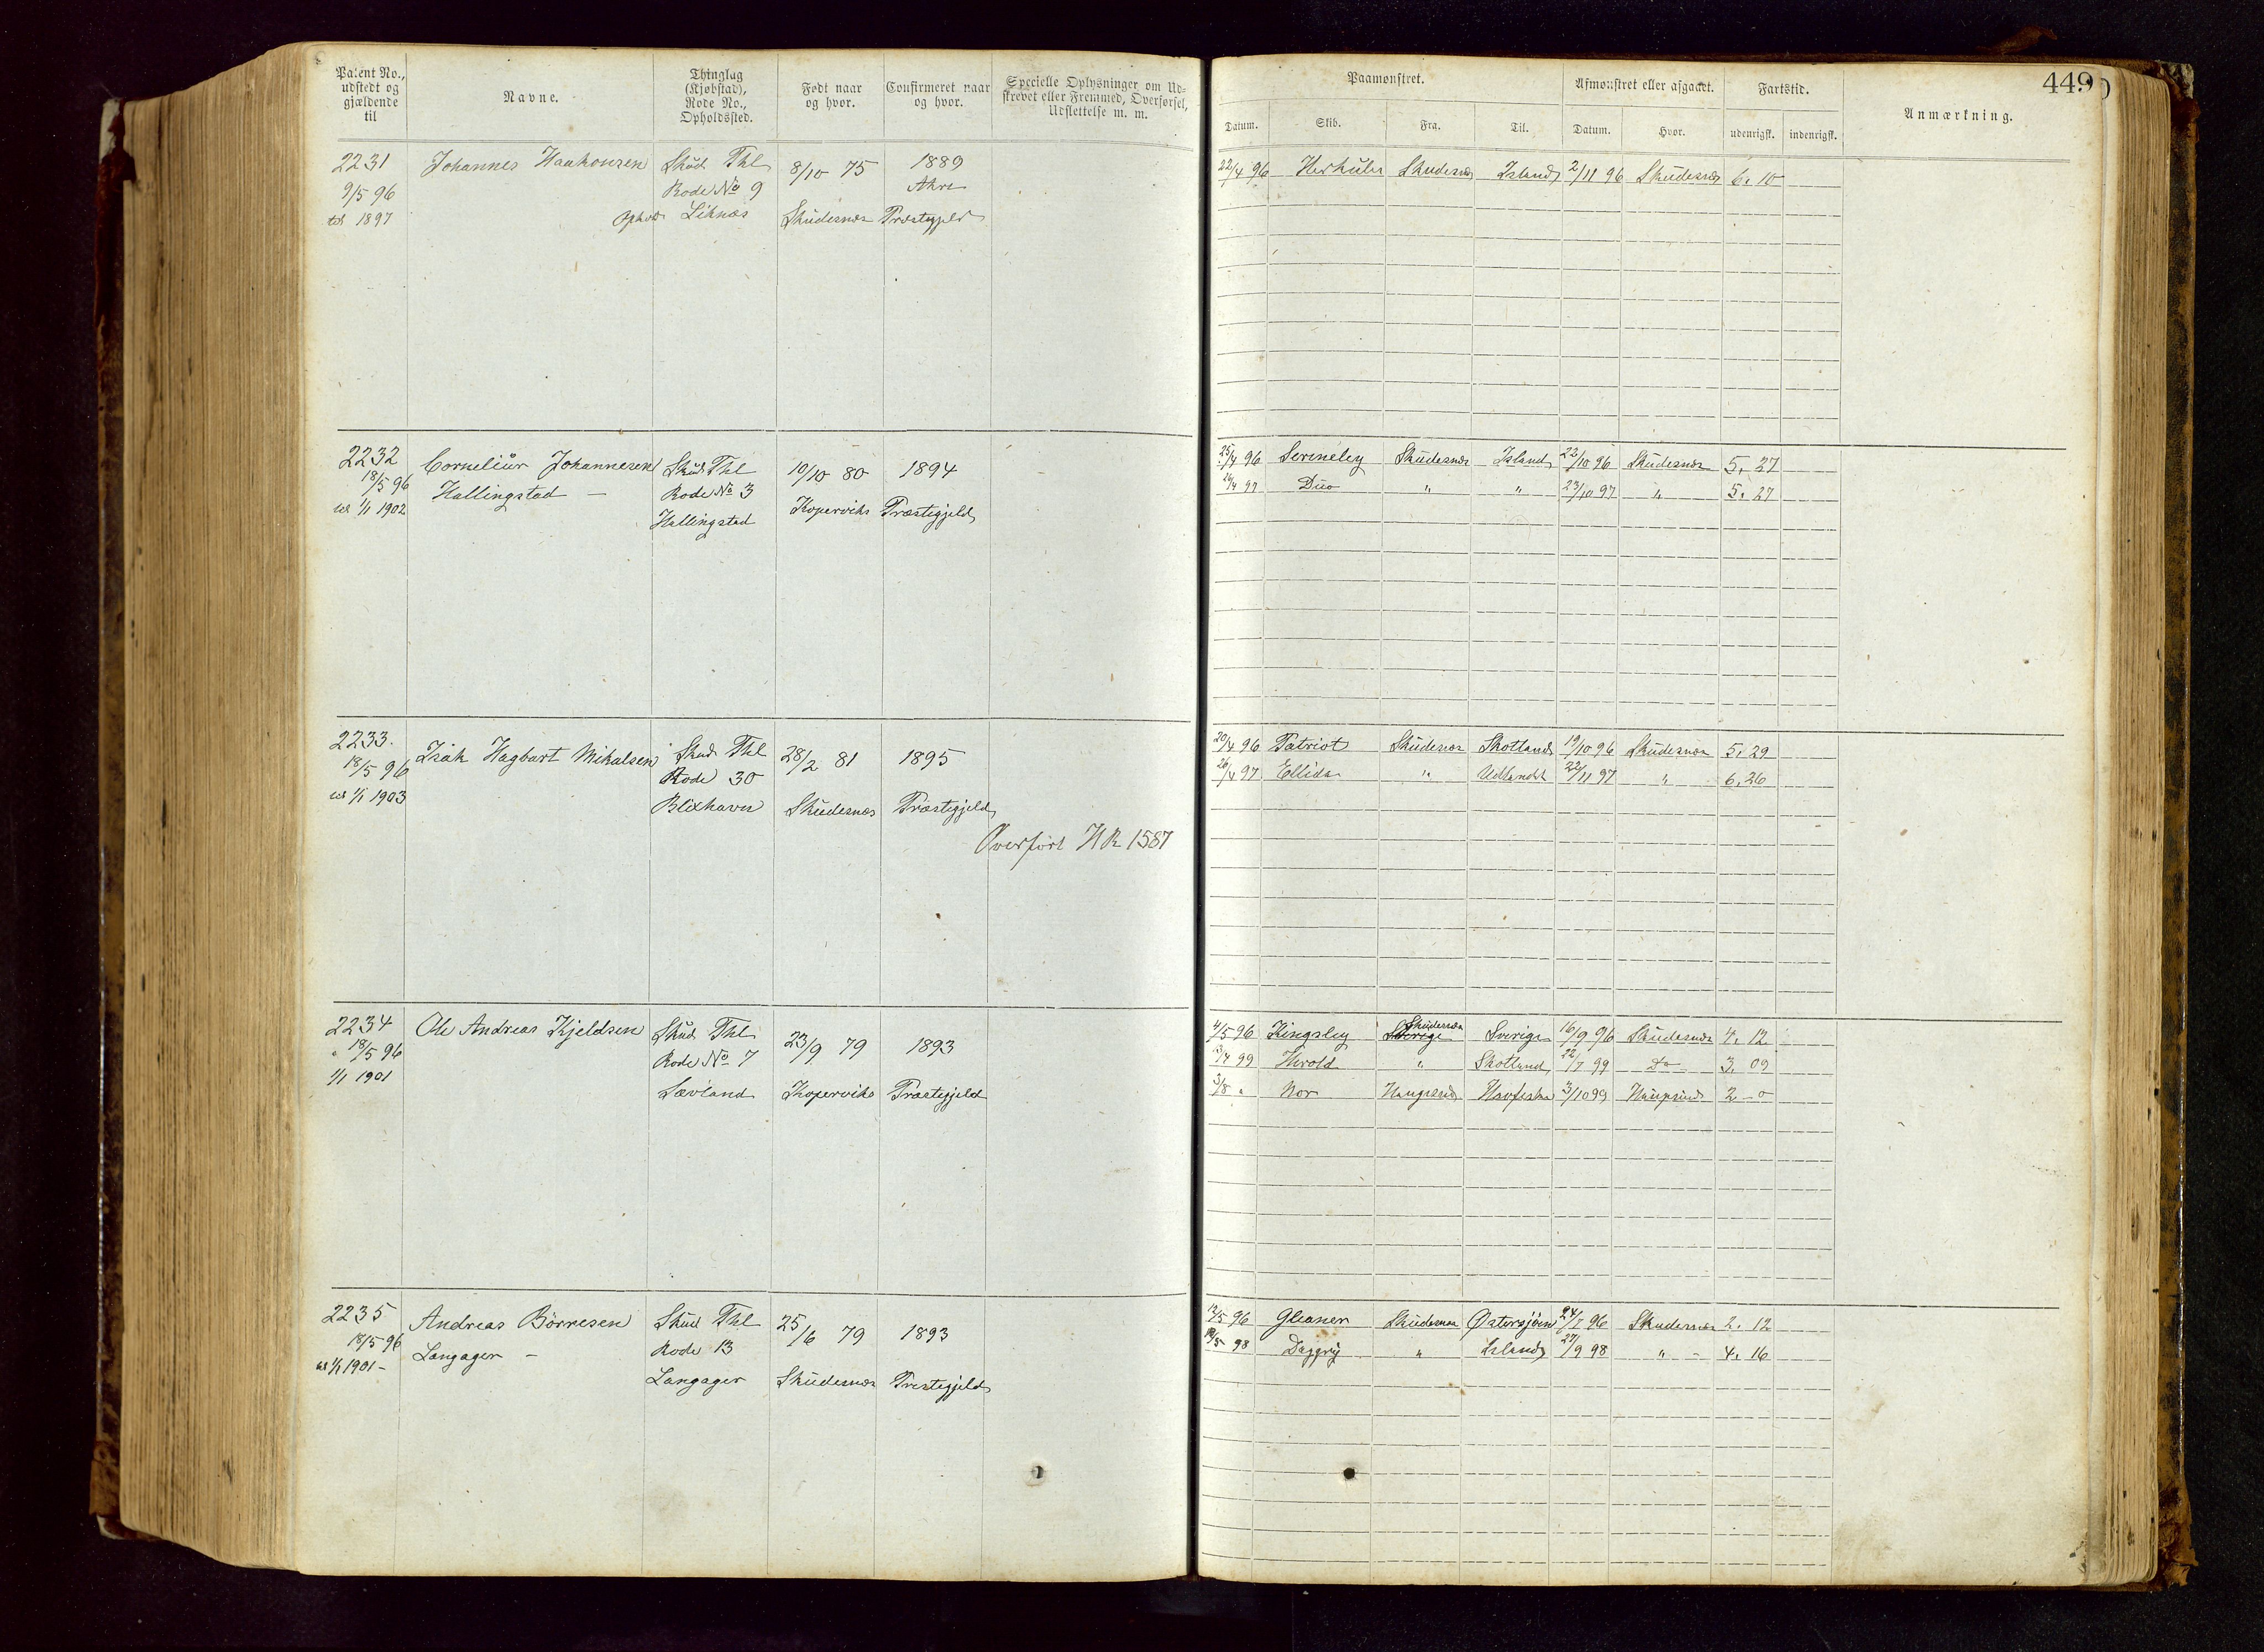 Patent No., udstedt og gjældende til
Navne.
Thinglag (Kjøbstad), Rode No., Opholdssted.
Født naar og hvor.
Confirmeret naar og hvor.
Specielle Oplysninger om Udskrevet eller Fremmed, Overførsel, Udslettelse m. m.
Paamønstret.
Afmønstret eller afgaaet.
Fartstid.
Anmærkning.
449
Datum.
Skib.
Fra.
Til.
Datum.
Hvor.
udenrigsk.
indenrigsk.
2231 Johannes Skud Thl 8/10 75 1889
9/5 96 Rode No 9 Ahre
til 1897 Ophold Liknæs Skudesnæs Præstegjeld
22/4 96 Skudesnæs Island 2/11 96 Skudesnæs 6. 10
2232 Cornelius Johannesen Skud Thl 10/10 80 1894
18/5 96 Hallingstad – Rode No 3
til 1/1 1902 Hallingstad Kopervik Præstegjeld
25/4 96 Skudesnæs Island 22/10 96 Skudesnæs 5. 27
26/4 97 Duo " " 23/10 97 " 5. 27
2233. Isak Hagbart Mikalsen Skud Thl 28/2 81 1895
18/5 96 Rode 30
til 1/1 1903 Blixhavn Skudesnæs Præstegjeld
Overført HR 1587
20/4 96 Patriot Skudesnæs Skotland 19/10 96 Skudesnæs 5. 29
26/4 97 Ellida " Udlandet 22/11 97 " 6. 26
2234 Ole Andreas Kjeldsen Skud Thl 23/9 79 1893
" 18/5 96 Rode No 7
1/1 1901 Sævland Kopervik Præstegjeld
4/5 96 Kingsley Skudesnæs Sverige 16/9 96 Skudesnæs 4. 12
13/4 99 Herold " Skotland 22/7 99 do 3. 09
3/8 " Nor Haugesund 3/10 99 Haugesund 2 – 0
2235 Andreas Börresen Skud Thl 25/6 79 1893
18/5 96 Langager – Rode 13
til 1/1 1901 – Langager Skudesnæs Præstegjeld
12/5 96 Gleaner Skudesnæs Østersjøen 24/7 96 Skudesnæs 2. 12
98 Daggry " Island 27/9 98 " – 4. 16